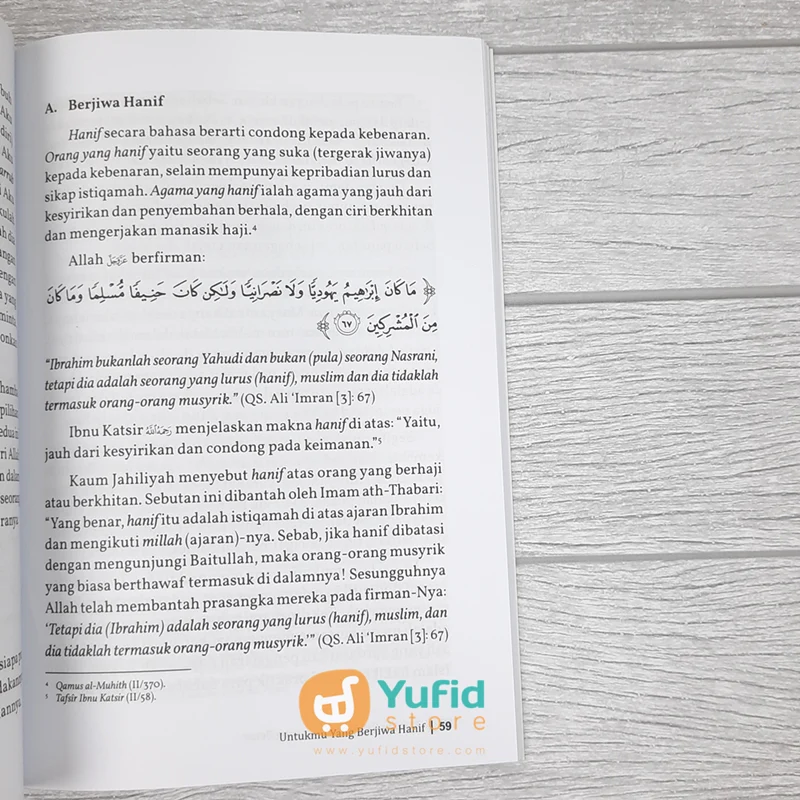 A. Berjiwa Hanif
Hanif secara bahasa berarti condong kepada kebenaran.
Orang yang hanif yaitu seorang yang suka (tergerak jiwanya)
kepada kebenaran, selain mempunyai kepribadian lurus dan
sikap istiqamah. Agama yang hanif ialah agama yang jauh dari
kesyirikan dan penyembahan berhala, dengan ciri berkhitan
dan mengerjakan manasik haji.⁴
Allah عَزَّوَجَلَّ berfirman:
﴿ مَا كَانَ إِبْرَٰهِيمُ يَهُودِيًّا وَلَا نَصْرَانِيًّا وَلَٰكِن كَانَ حَنِيفًا مُّسْلِمًا وَمَا كَانَ
مِنَ ٱلْمُشْرِكِينَ ٦٧ ﴾
“Ibrahim bukanlah seorang Yahudi dan bukan (pula) seorang Nasrani,
tetapi dia adalah seorang yang lurus (hanif), muslim dan dia tidaklah
termasuk orang-orang musyrik.” (QS. Ali ‘Imran [3]: 67)
Ibnu Katsir رَحِمَهُ اللَّهُ menjelaskan makna hanif di atas: “Yaitu,
jauh dari kesyirikan dan condong pada keimanan.”⁵
Kaum Jahiliyah menyebut hanif atas orang yang berhaji
atau berkhitan. Sebutan ini dibantah oleh Imam ath-Thabari:
“Yang benar, hanif itu adalah istiqamah di atas ajaran Ibrahim
dan mengikuti millah (ajaran)-nya. Sebab, jika hanif dibatasi
dengan mengunjungi Baitullah, maka orang-orang musyrik
yang biasa berthawaf termasuk di dalamnya! Sesungguhnya
Allah telah membantah prasangka mereka pada firman-Nya:
‘Tetapi dia (Ibrahim) adalah seorang yang lurus (hanif), muslim, dan
dia tidaklah termasuk orang-orang musyrik.’” (QS. Ali ‘Imran [3]: 67)
⁴ Qamus al-Muhith (II/370).
⁵ Tafsir Ibnu Katsir (II/58).
Untukmu Yang Berjiwa Hanif | 59
Yufid
store
www.yufidstore.com